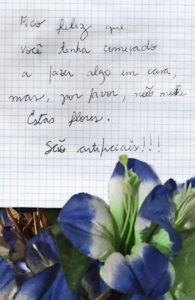 Fico feliz que
você tenha começado
a fazer algo em casa,
mas, por favor, não molhe
Estas flores.
São artificiais!!!